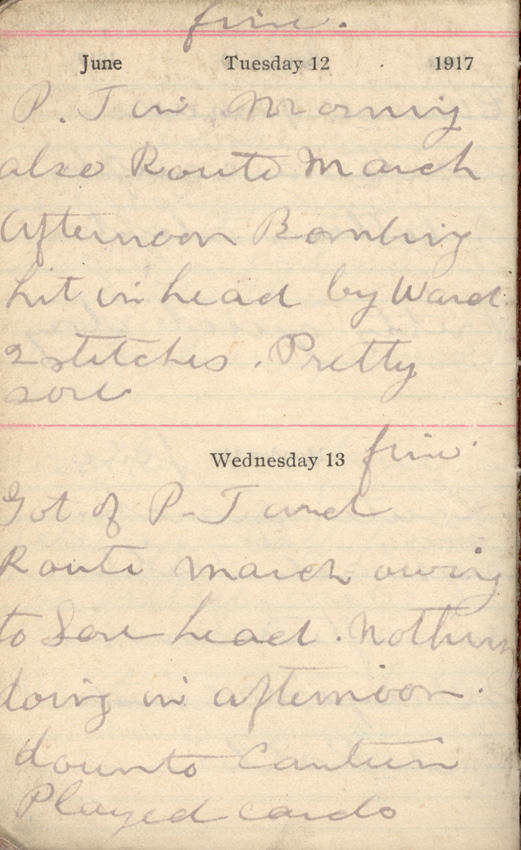 fine.
June Tuesday 12 1917
P. T in Morning
also Route March
Afternoon Bombing
hit in head by Ward.
2 stitches. Pretty
sore
Wednesday 13 fine
Got of P-T and
Route march owing
to Sore head. Nothing
doing in afternoon.
down to Canteen
Played cards